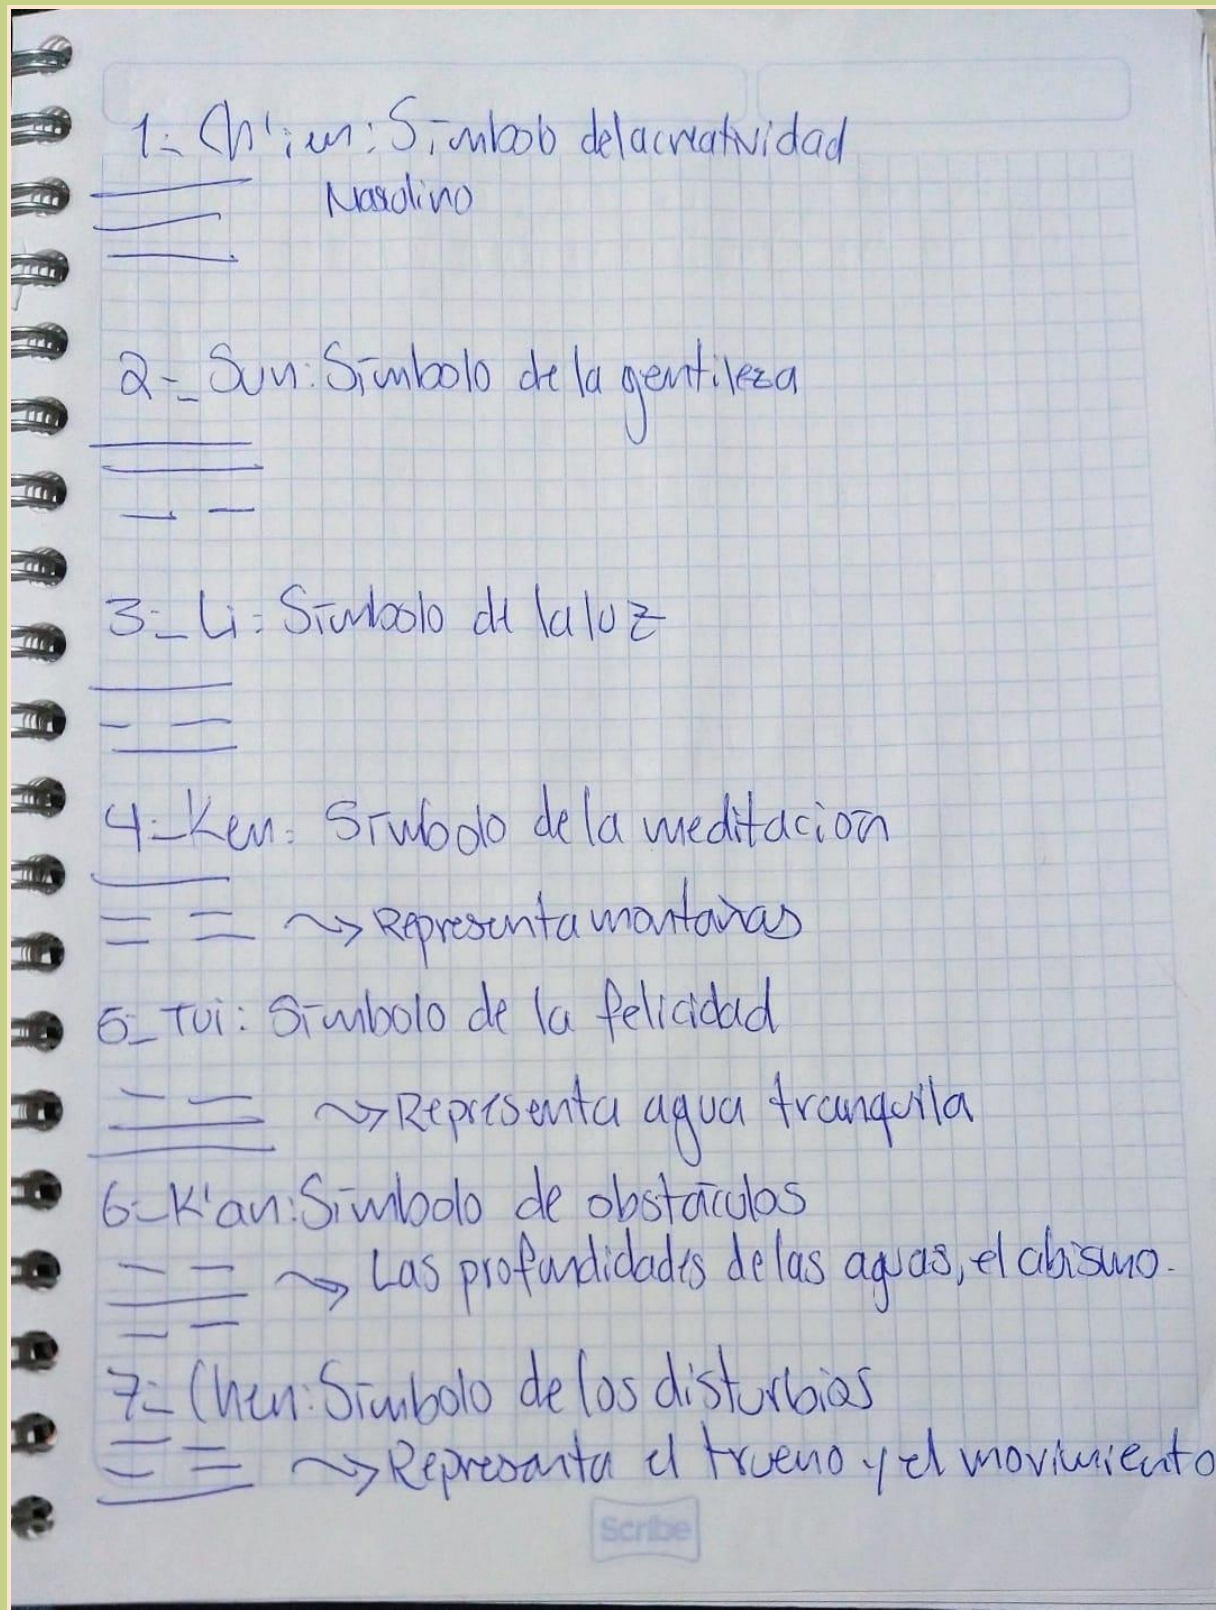 1- Ch'ien: Símbolo de la creatividad
Masculino
2- Sun: Símbolo de la gentileza
3- Li: Símbolo de la luz
4- Ken: Símbolo de la meditación
Representa montañas
5- Tui: Símbolo de la felicidad
Representa agua tranquila
6- K'an: Símbolo de obstáculos
Las profundidades de las aguas, el abismo.
7- Chen: Símbolo de los disturbios
Representa el trueno y el movimiento
Scribe